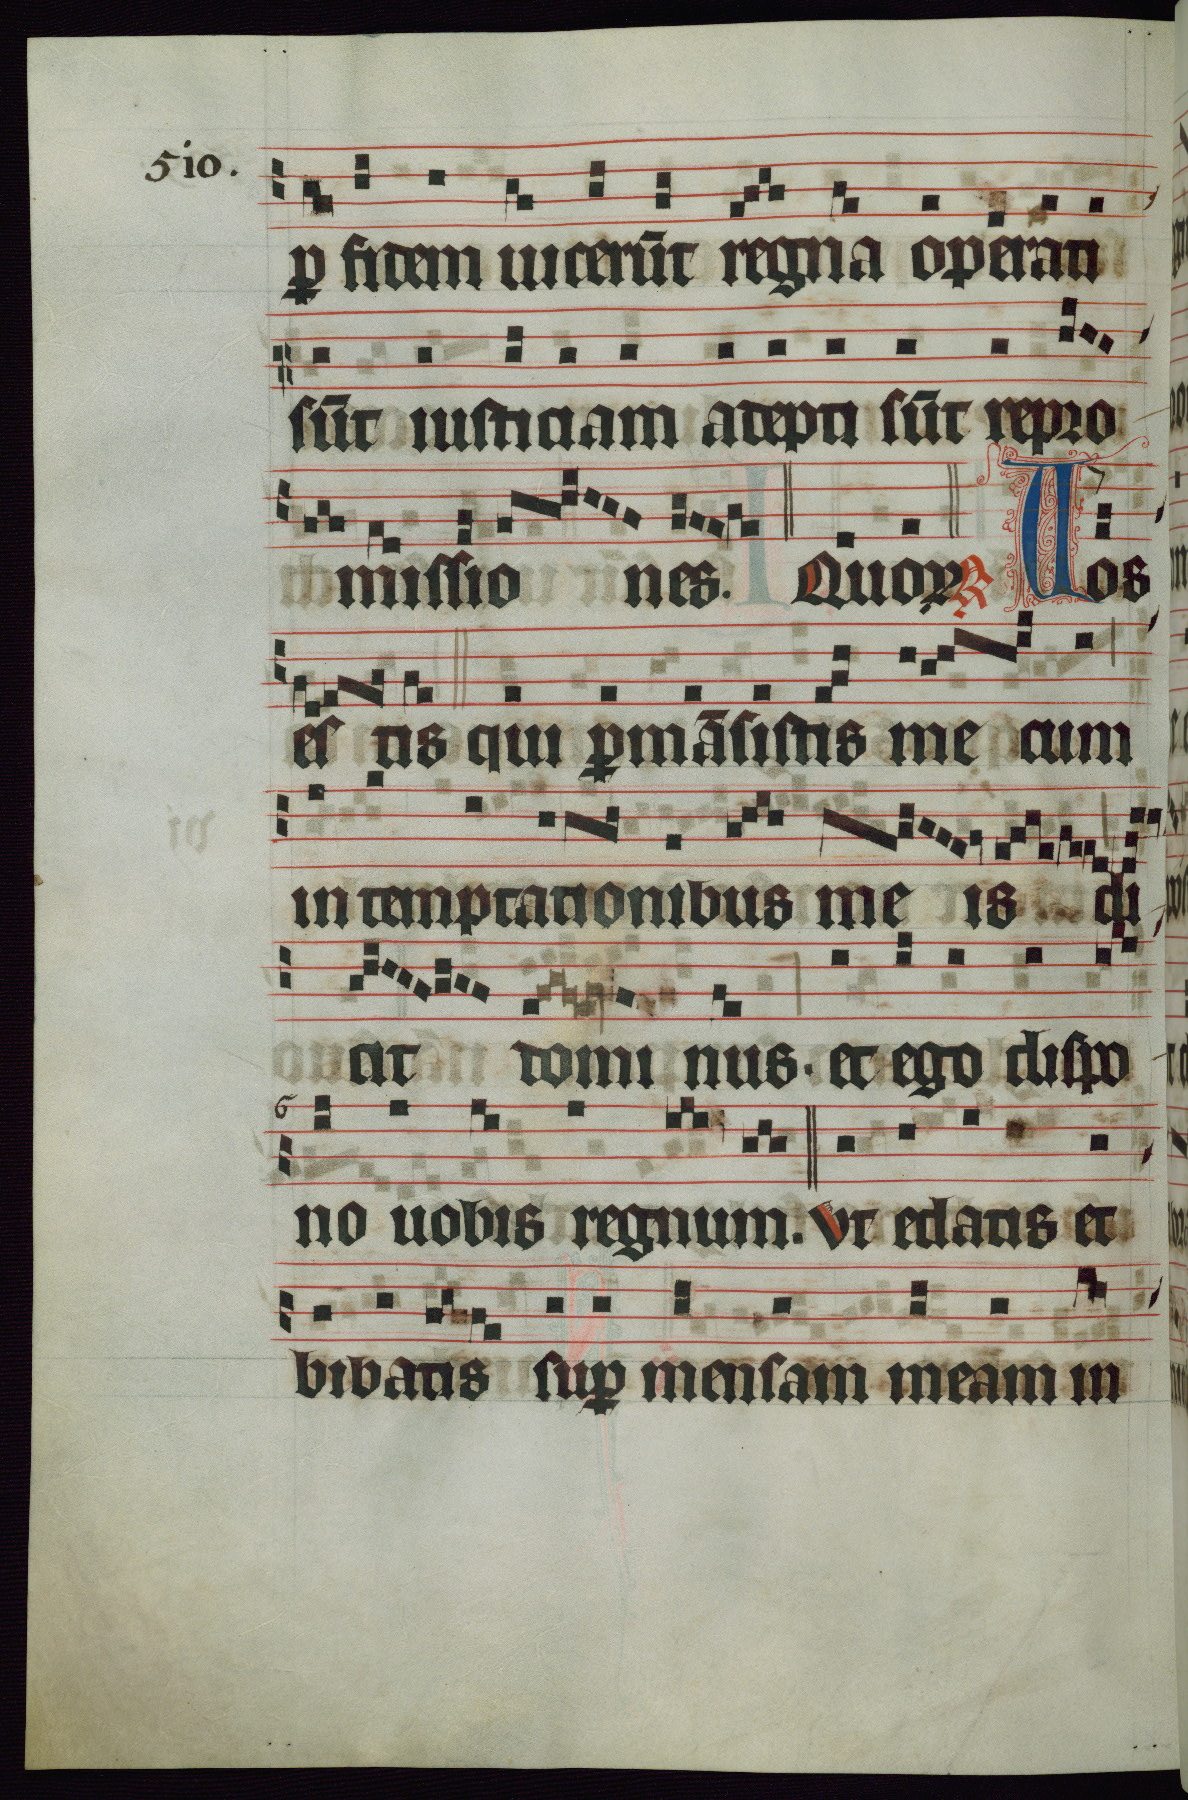 510.
ꝑ fidem uicerūt regna operati
sūt iusticiam adepti sūt repro
missio nes. Quoꝝ ℟ Uos
es tis qui ꝑmāsistis me cum
in temptationibus me is di
cit domi nus. et ego dispo
no uobis regnum. Vt edatis et
bibatis suꝑ mensam meam in